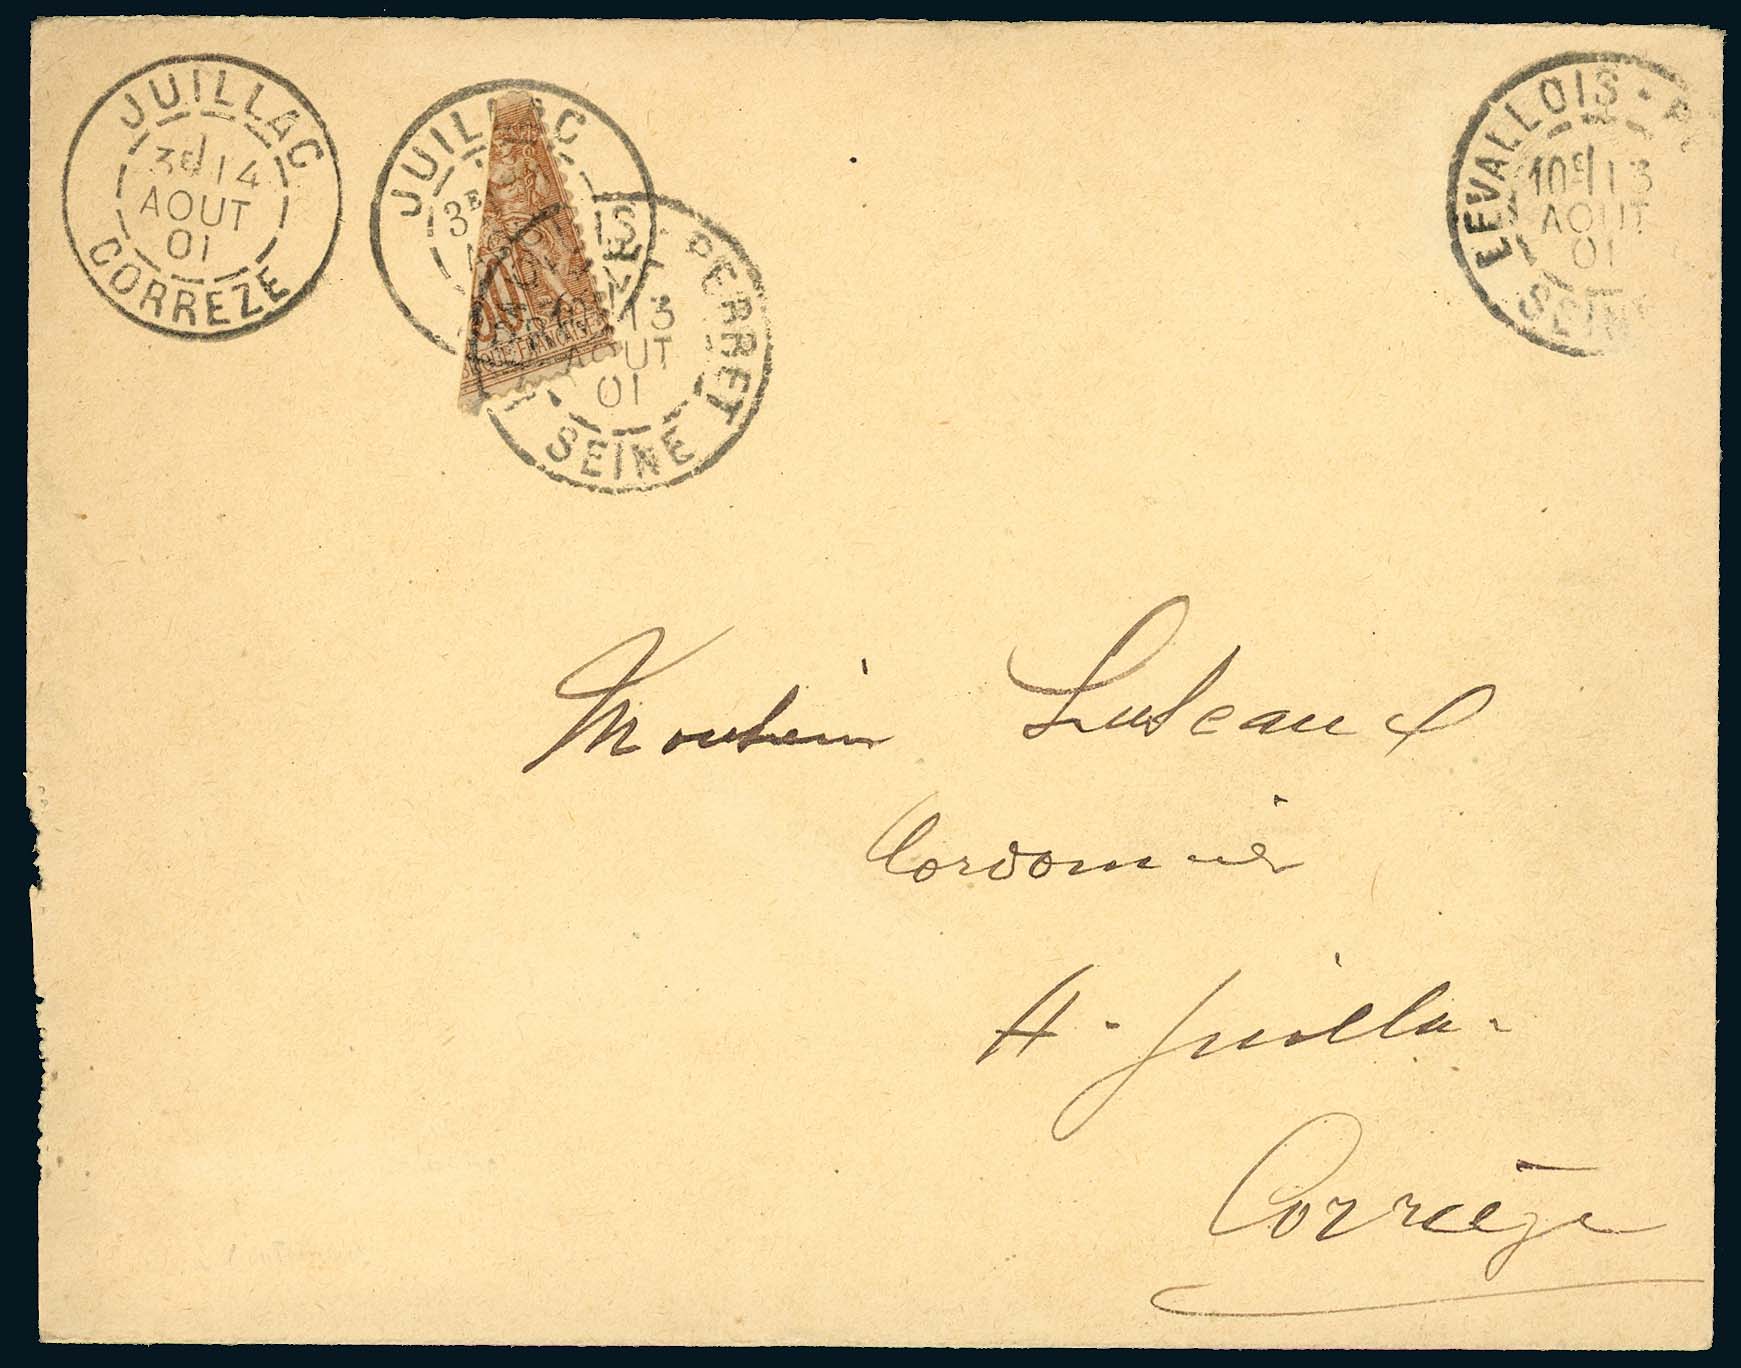 JUILLAC
3e 14
AOUT
01
CORREZE
JUILLAC
3E
LEVALLOIS · P
10e 13
AOUT
01
SEINE
IS · PERRET
13
AOUT
01
SEINE
QUE FRANÇAISE
Cordonnier
A - Juilla-
Corrèze